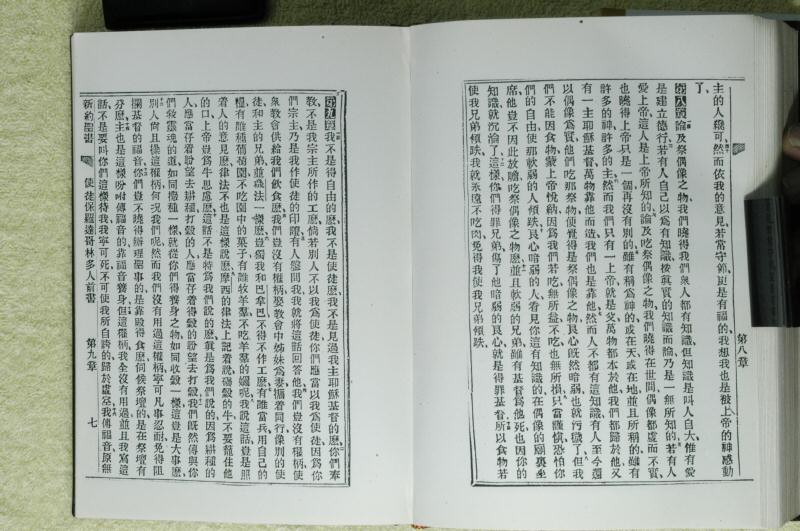 主的人纔可然而依我的意見若常守節更是有福的我想我也是被上帝的神感動
了
第八章論及祭偶像之物我們曉得我們衆人都有知識但知識是叫人自大惟有愛
是建立德行若有人自己以爲有知識按眞實的知識而論乃是一無所知的若有人
愛上帝這人是上帝所知的論及吃祭偶像之物我們曉得在世間偶像都虛而不實
也曉得上帝只是一個再沒有別的雖有稱爲神的或在天或在地並且所稱的雖有
許多的神許多的主然而我們只有一上帝就是父萬物都本於他我們都歸於他又
有一主耶穌基督萬物靠他而造我們也是靠他然而人不都有這知識有人至今還
以偶像爲實他們吃那祭物便覺得是祭偶像之物良心既然暗弱也就污穢了但我
們不能因食物蒙上帝悅納因爲我們若吃無所益不吃也無所損只當謹慎恐怕你
們的自由使那軟弱的人傾跌良心暗弱的人看見你這有知識的在偶像的廟裏坐
席他豈不因此放膽吃祭偶像之物麽並且軟弱的兄弟雖有基督爲他死也因你的
知識就沉淪了這樣你們得罪兄弟傷了他暗弱的良心就是得罪基督所以食物若
使我兄弟傾跌我就永遠不吃肉免得我使兄弟傾跌
第八章
第九章我不是得自由的麽我不是使徒麽我不是見過我主耶穌基督的麽你們奉
教不是我宗主所作的工麽倘若別人不以我爲使徒你們應當以我爲使徒因爲你
們宗主乃是我作使徒的印證有人盤問我我就將這話回答他我們豈沒有權柄使
衆教會供給我們飲食麽我們豈沒有權柄娶教會中姊妹爲妻攜着同行像別的使
徒和主的兄弟並磯法一樣麽豈獨我和巴拿巴不得不作工麽有誰當兵用自己的
糧有誰種葡萄園不吃園中的菓子有誰牧羊羣不吃羊羣的嬭呢我說這話豈是照
着人的意見麽律法不也是這樣說麽摩西的律法上記着說碭穀的牛不要籠住他
的口上帝豈爲牛思慮麽這話不是特爲我們說的麽眞是爲我們說的因爲耕種的
人應當存着盼望去耕種打穀的人應當存着得穀的盼望去打穀我們既然傳與你
們救靈魂的道如同撒種一樣就從你們得養身之物如同收穀一樣這豈是大事麽
別人尙且操這權柄何況我們呢然而我們沒有用過這權柄寧可凡事忍耐免得阻
攔基督的福音你們豈不曉得辦理聖事的是靠殿得食麽伺候祭壇的是在祭壇有
分麽主也是這樣吩咐傳福音的靠福音養身但這權柄我全沒有用過並且我寫這
話不是要叫你們這樣待我我寧可死不可使我所誇的歸於虛空我傳福音原無
新約聖書 使徒保羅達哥林多人前書 第九章 七